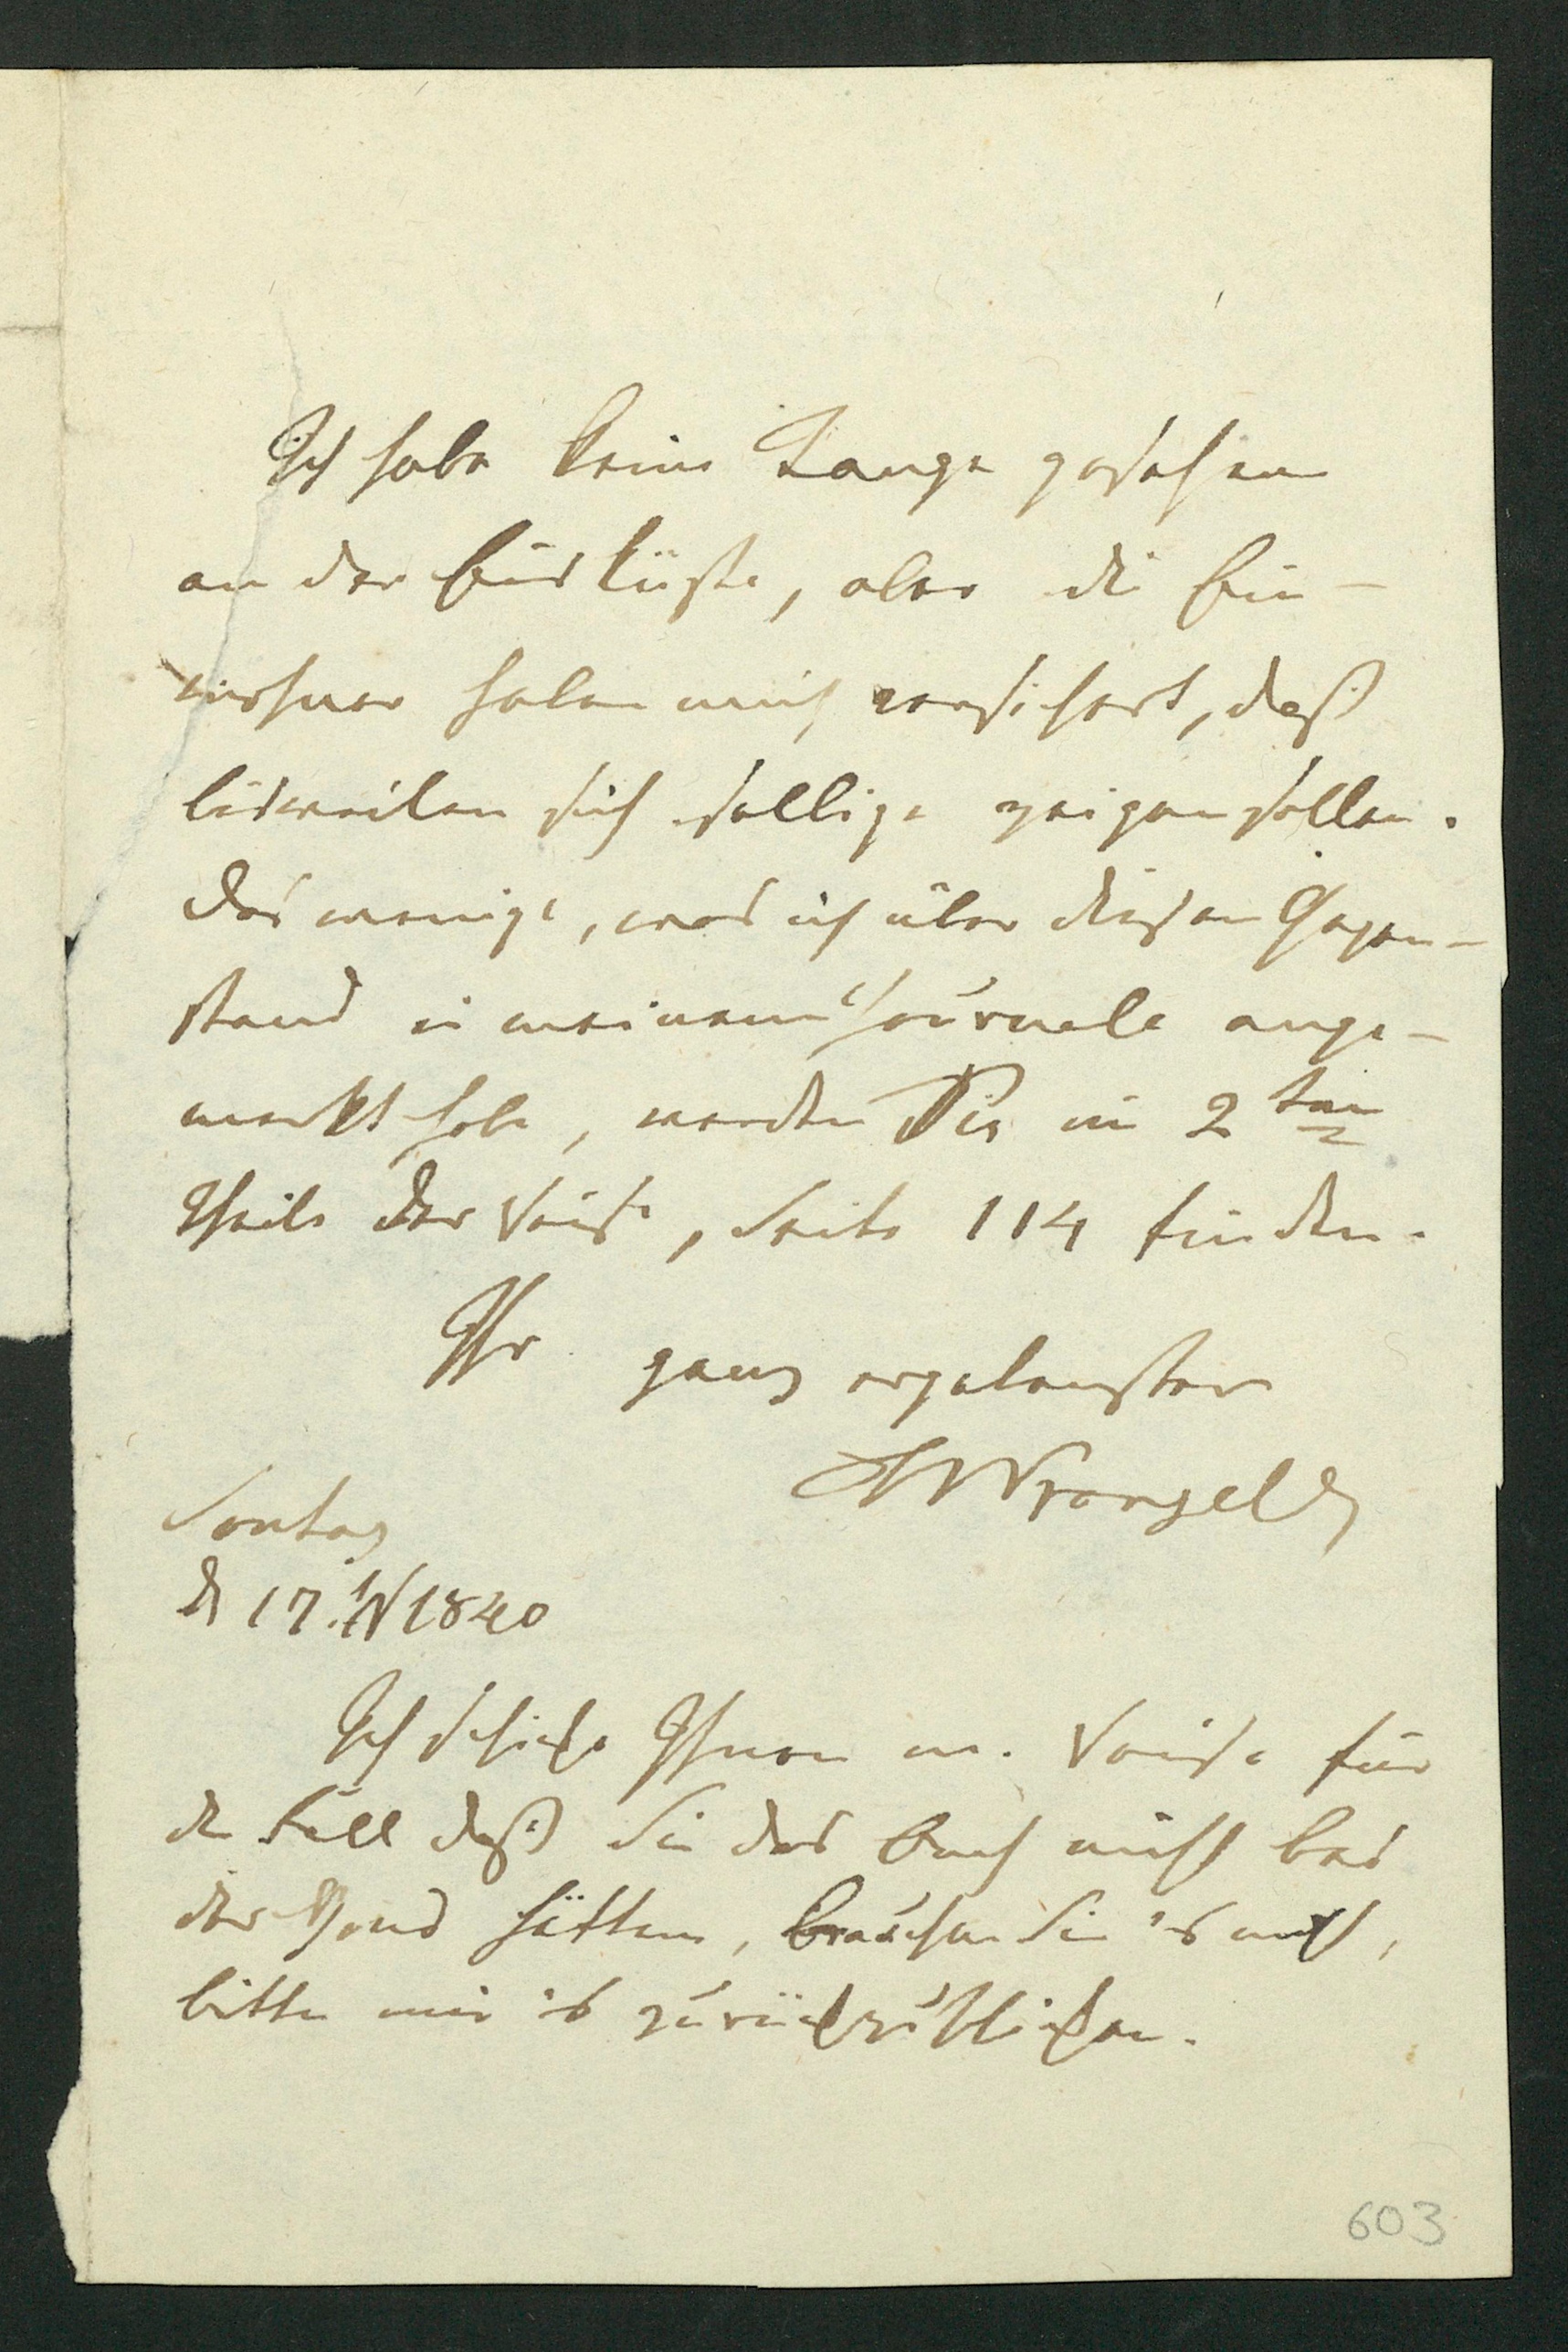 Ich habe keine Tange gesehen
an der Eisküste, aber die Ein-
wohner haben mich versichert, daß
bisweilen sich selbige zeigen sollen.
Das wenige, was ich über diesen Gegen-
stand in meinem Journale ange-
merkt habe, werden Sie im 2ten
Theile der Reise, Seite 114 finden.
Ihr ganz ergebenster
FWrangell
Sontag
d 17. 1840
Ich schicke Ihnen m. Reise für
den Fall daß Sie das Buch nicht bei
der Hand hätten, brauchen Sie es nicht,
bitte mir es zurückzuschicken.
603